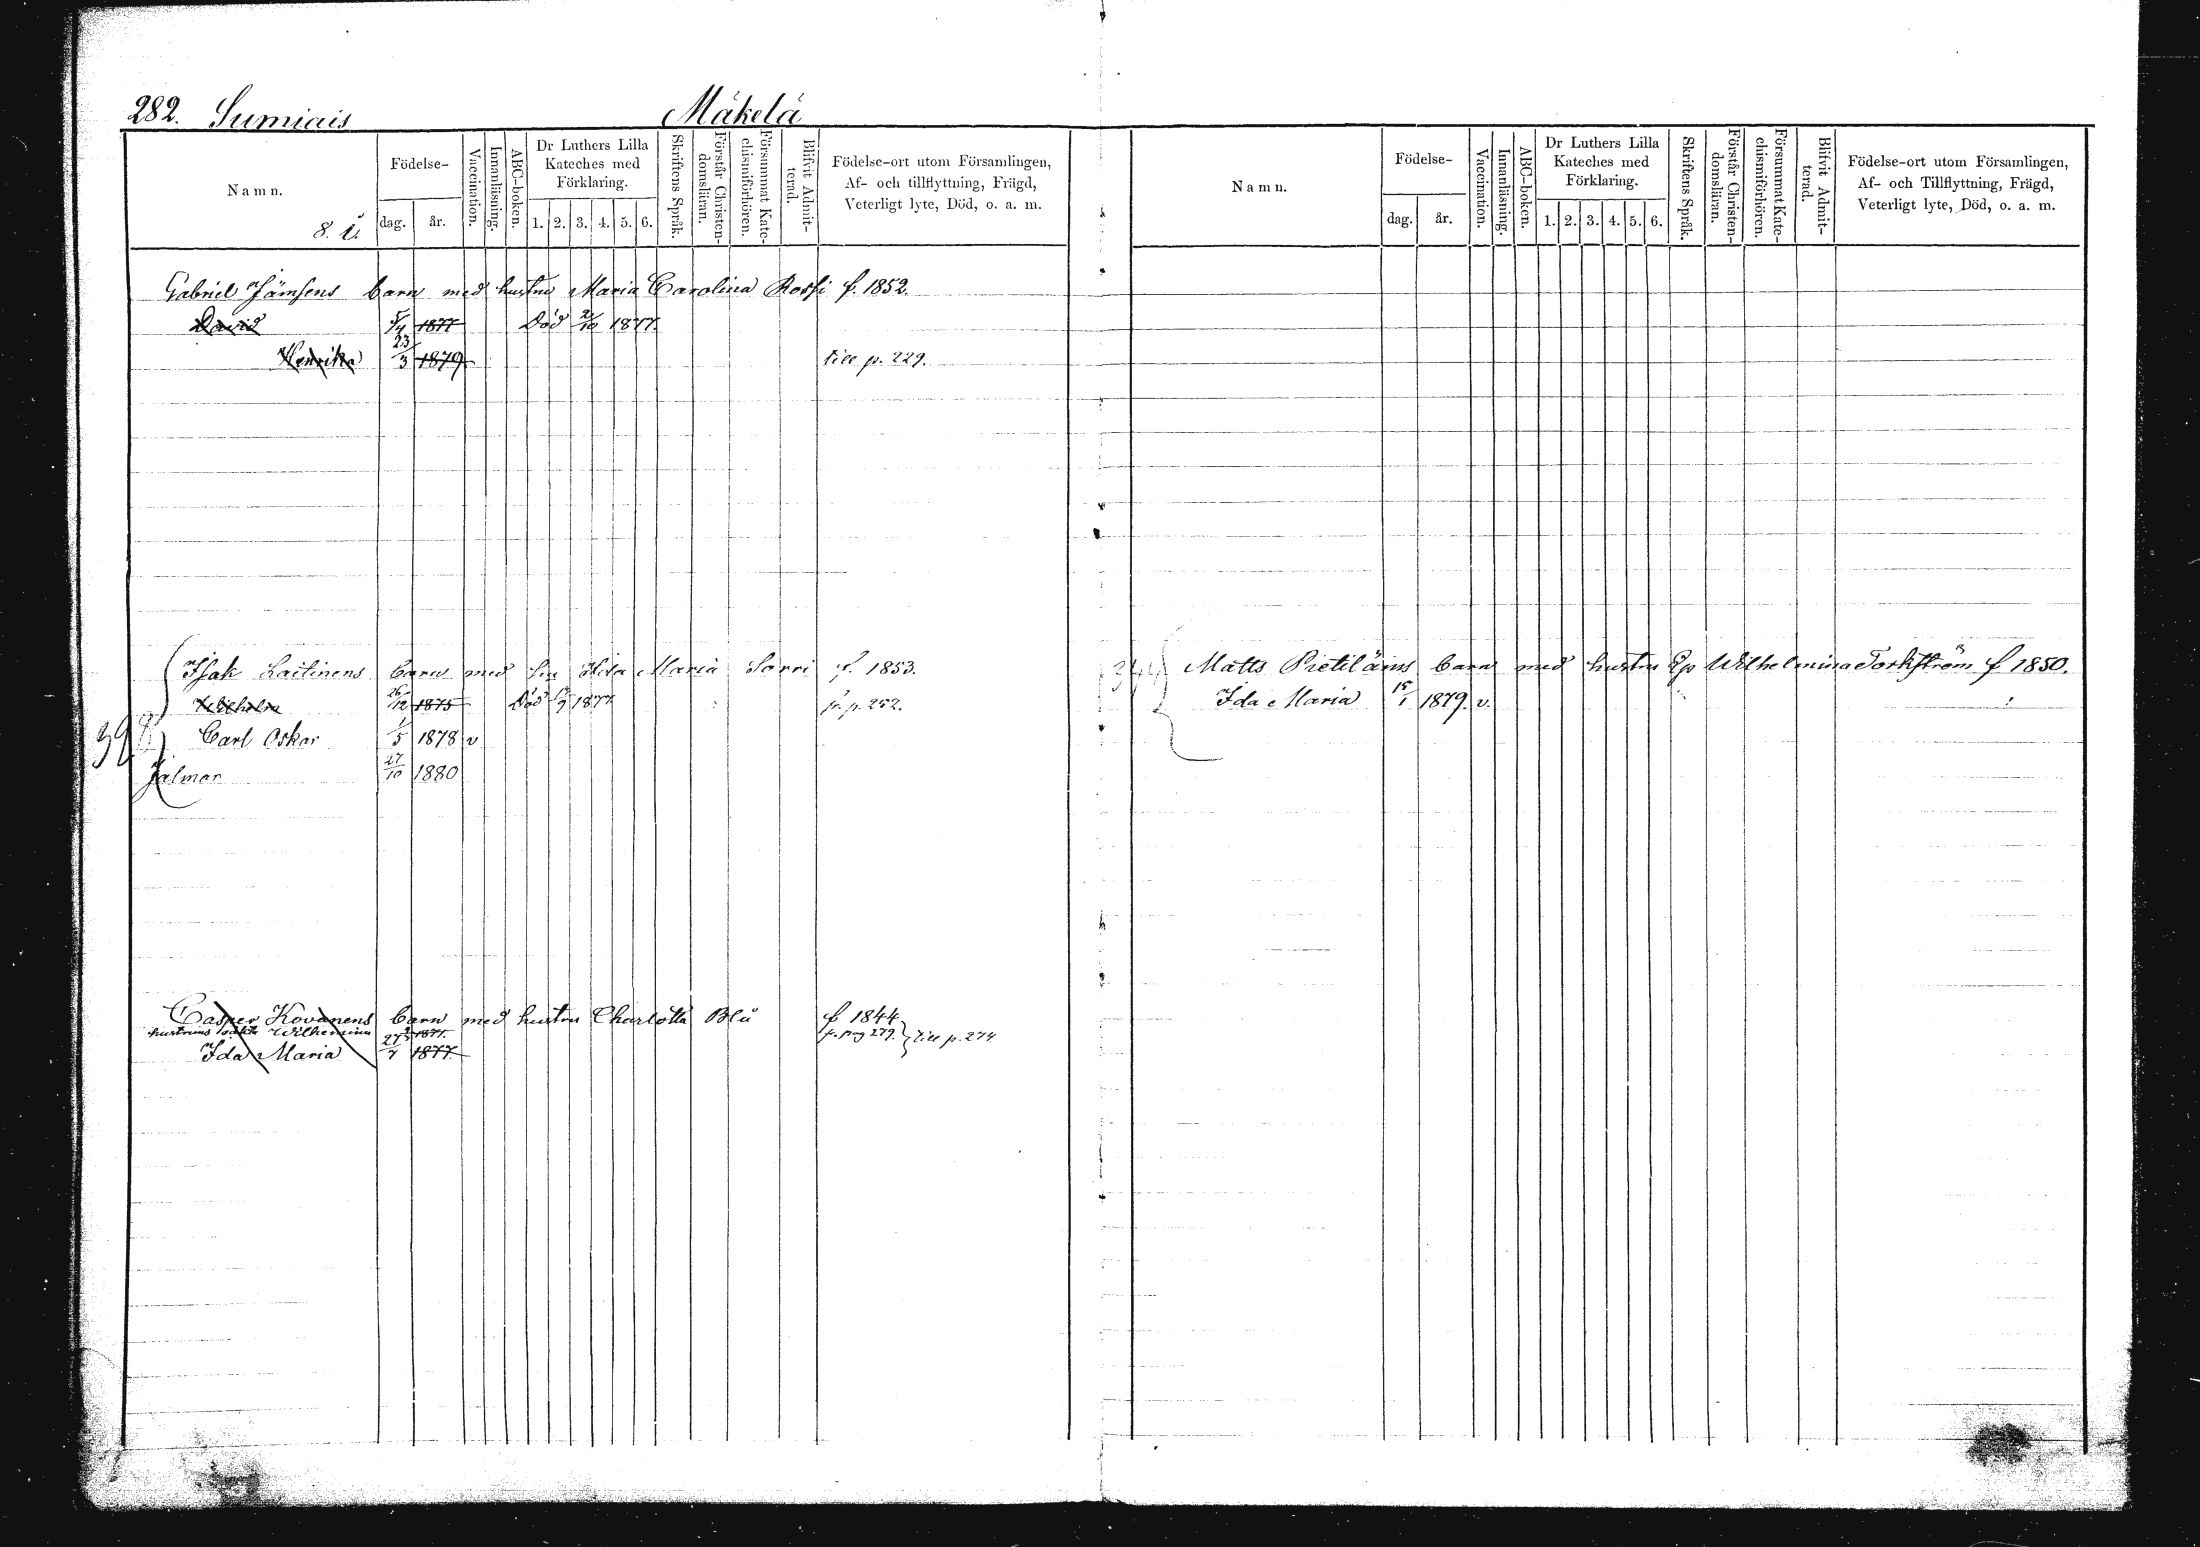 282. Sumiais Mäkelä
Namn. Födelse- dag. år. Vaccination. Innanläsning. ABC-boken. Dr Luthers Lilla Kateches med Förklaring. 1. 2. 3. 4. 5. 6. Skriftens Språk. Förstår Christendomsläran. Försummat Katechismiförhören. Blifvit Admitterad. Födelse-ort utom Församlingen, Af- och tillflyttning, Frägd, Veterligt lyte, Död, o. a. m.
8.
Gabriel Jämsens barn med hustru Maria Carolina Rossi f. 1852.
David 5/4 1877 Död 2/10 1877.
Henrika 23/3 1879 till p. 229.
Isak Laitinens barn med hu Hilda Maria Sorri f. 1853.
Wilhelm 26/12 1875 Död 1877 fr. p. 252.
398
Carl Oskar 1/5 1878 v
Jalmar 27/10 1880
Casper Kovanens barn med hustru Charlotta Blu f 1844
hustruns Wilhelmina 1871. fr. pag 279. till p. 274
Ida Maria 27/7 1877.
Namn. Födelse- dag. år. Vaccination. Innanläsning. ABC-boken. Dr Luthers Lilla Kateches med Förklaring. 1. 2. 3. 4. 5. 6. Skriftens Språk. Förstår Christendomsläran. Försummat Katechismiförhören. Blifvit Admitterad. Födelse-ort utom Församlingen, Af- och Tillflyttning, Frägd, Veterligt lyte, Död, o. a. m.
344 Matts Pietiläins barn med hustru Ep Wilhelmina Torkström f 1850.
Ida Maria 15/1 1879. v.